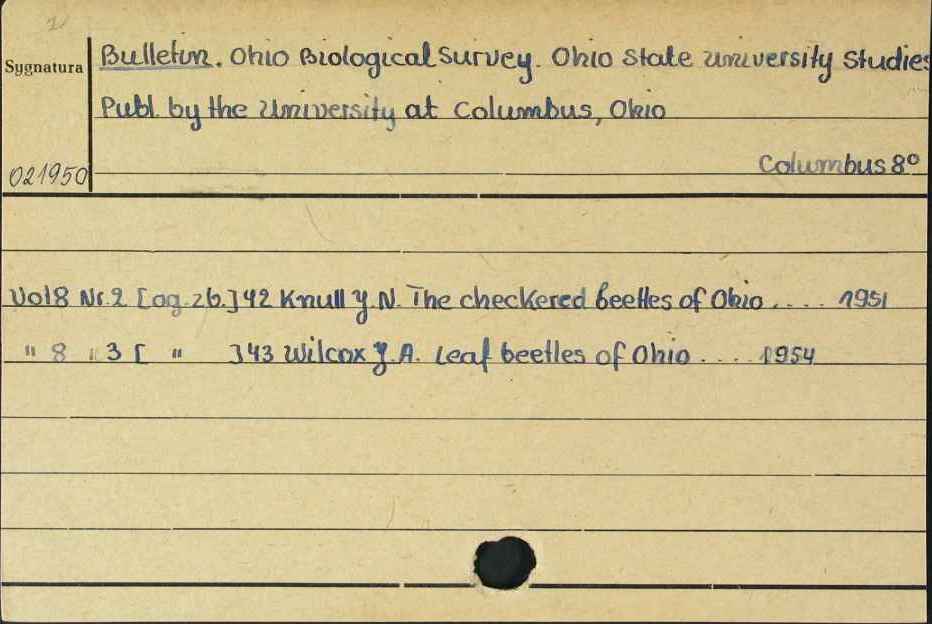 Bulletin. Ohio Biological Survey. Ohio State University Studies
Sygnatura
Publ. by the University at Columbus, Ohio
Columbus 8°
021950
Vol 8 Nr. 2 [og. zb.] 42 Knull J. N. The checkered beetles of Ohio .... 1951
" 8 " 3 [ " ] 43 Wilcox J. A. Leaf beetles of Ohio .... 1954